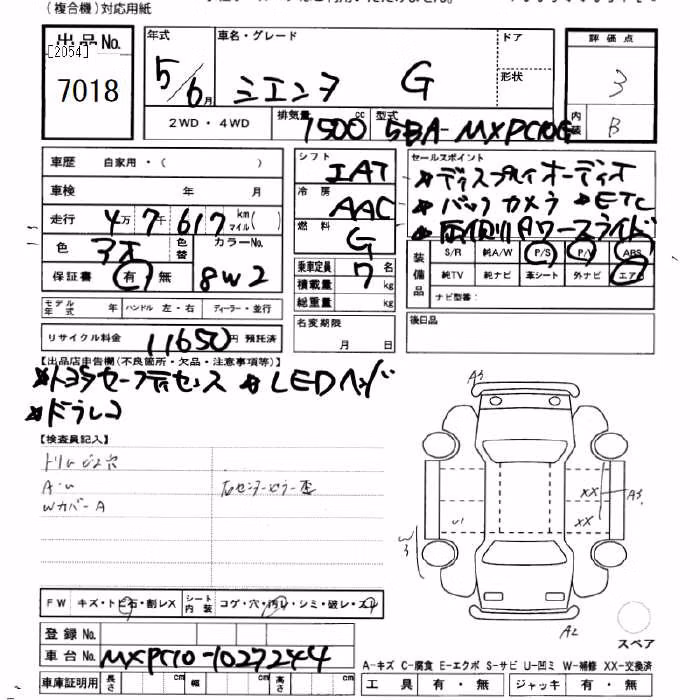 (複合機)対応用紙
出品No.
[2054]
7018
年式 車名・グレード ドア
5/6月 シエンタ G 形状
2WD・4WD 排気量 1500 cc 型式 5BA-MXPC10G
評価点
3
内装 B
車歴 自家用・( )
車検 年 月
走行 4万7千617 km マイル( )
色 アオ 色替 カラーNo.
保証書 有 無 8W2
モデル年式 年 ハンドル 左・右 ディーラー・並行
リサイクル料金 11650円 預託済
シフト IAT
冷房 AAC
燃料 G
乗車定員 7 名
積載量 kg
総重量 kg
名変期限
月 日
セールスポイント
*ディスプレイオーディオ
*バックカメラ *ETC
*両側Pワースライド
装備品 S/R 純A/W P/S P/W ABS
純TV 純ナビ 革シート 外ナビ エアB
ナビ型番:
後日品
【出品店申告欄(不良箇所・欠品・注意事項等)】
*トヨタセーフティセンス *LEDヘッド
*ドラレコ
【検査員記入】
A・U
Wカバー A
FW キズ・トビ石・割レX シート内装 コゲ・穴・汚レ・シミ・破レ・スレ
登録No.
車台No. MXPC10-1027244
車庫証明用 長さ cm 幅 cm 高さ cm
A3
XX A3
U1 XX
W3
A2
スペア
A-キズ C-腐食 E-エクボ S-サビ U-凹ミ W-補修 XX-交換済
工具 有・無 ジャッキ 有・無